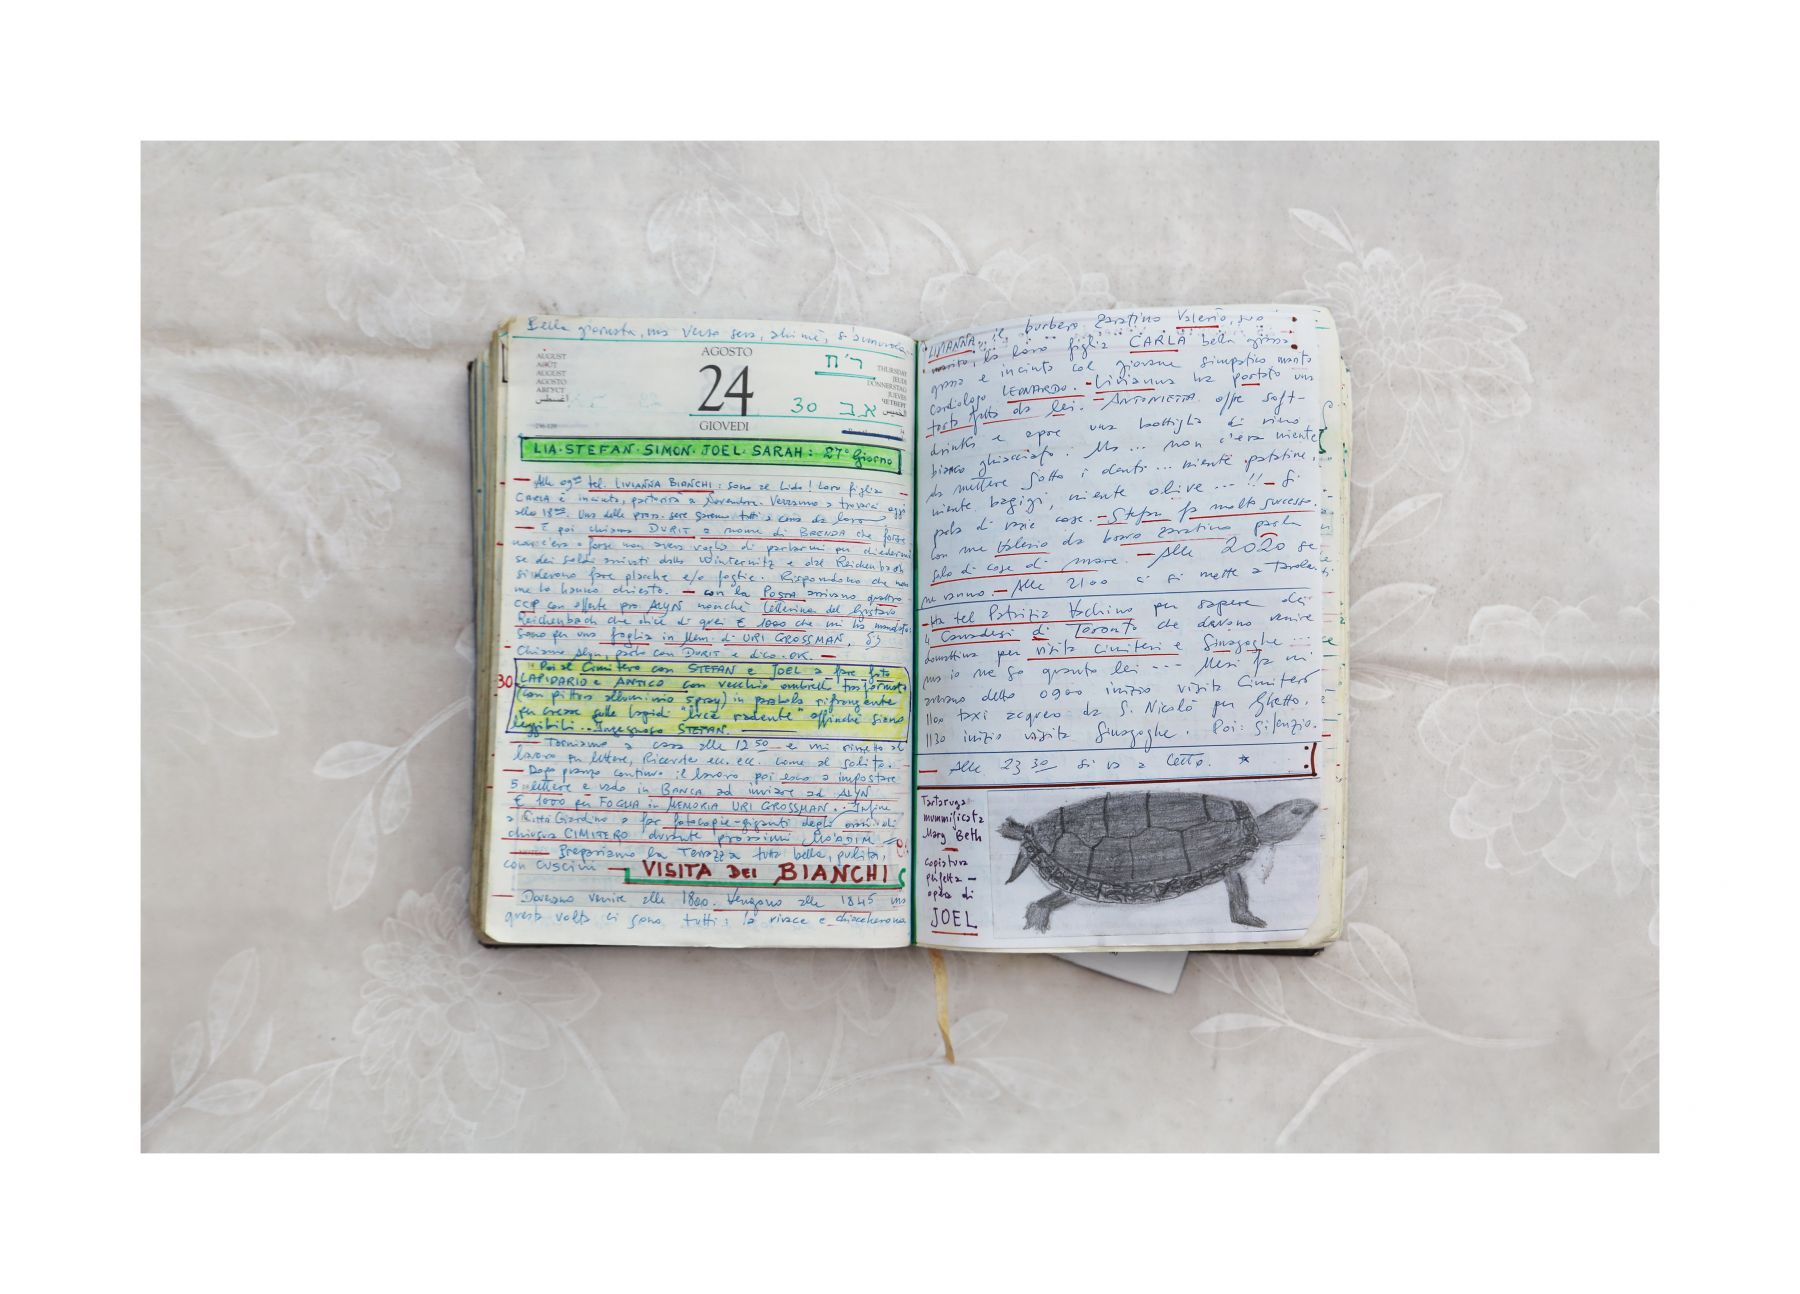 Bella giornata, ma verso sera, ahimè, s'annuvola..
AUGUST
AOÛT
AUGUST
AGOSTO
АВГУСТ
أغسطس
AGOSTO
24
GIOVEDI
ר״ח
30 אב
THURSDAY
JEUDI
DONNERSTAG
JUEVES
ЧЕТВЕРГ
الخميس
236-129
LIA · STEFAN · SIMON · JOEL · SARAH : 27° Giorno
— Alle 09 tel. LIVIANNA BIANCHI : sono al Lido! Loro figlia
CARLA è incinta, partorirà a Novembre. Verranno a trovarci oggi
alle 18. Una delle pross. sere saremo tutti a cena da loro
— E poi chiama DURIT a nome di BRENDA che forse
non c'era o forse non aveva voglia di parlarmi per chiedermi
se dei soldi arrivati dalla Winternitz e dal Reichenbach
si devono fare placche e/o foglie. Rispondono che non
me lo hanno chiesto. — con la POSTA arrivano quattro
CCP con offerte pro ALYN nonché letterina del Gustavo
Reichenbach che dice di quei € 1000 che mi ha mandato:
sono per una foglia in Mem. di URI GROSSMAN,
Chiamo Alyn, parlo con DURIT e dico OK. —
30 Poi al Cimitero con STEFAN e JOEL a fare foto
LAPIDARIO e ANTICO con vecchio ombrello trasformato
(con pittura alluminio spray) in parabola rifrangente
per creare sulle lapidi "luce radente" affinché siano
leggibili.. Ingegnoso STEFAN.
— Torniamo a casa alle 12 50 e mi rimetto al
lavoro su lettere, Ricevute ecc. ecc. come al solito.
— Dopo pranzo continuo il lavoro poi esco a impostare
5 lettere e vado in BANCA ad inviare ad ALYN
€ 1000 per FOGLIA in MEMORIA URI GROSSMAN. Infine
a Città Giardino a far fotocopie-giganti degli orari di
chiusura CIMITERO durante prossimi MO'ADIM
— Prepariamo la Terrazza tutta bella, pulita,
con cuscini — VISITA DEI BIANCHI
Dovevano venire alle 1800. Vengono alle 1845 ma
questa volta ci sono tutti: la vivace e chiacchierona
LIVIANNA, il burbero zaratino Valerio, suo
marito, la loro figlia CARLA bella grossa
grossa e incinta col giovane simpatico marito
cardiologo LEONARDO. — Livianna ha portato una
torta fatta da lei. — ANTONIETTA offre soft-
drinks e apre una bottiglia di vino
bianco ghiacciato. Ma... non c'era niente
da mettere sotto i denti... niente patatine,
niente bagigi, niente olive ... !! — Si
parla di varie cose. — Stefan fa molto successo.
con me Valerio da bravo zaratino parla
solo di cose di mare. — Alle 2020 se
ne vanno. — Alle 2100 ci si mette a Tavola
— Ha tel Patrizia Vachino per sapere dei
4 Canadesi di Toronto che devono venire
domattina per visita Cimiteri e Sinagoghe ...
ma io ne so quanto lei --- Mesi fa mi
avevano detto 0900 inizio visita Cimitero
1100 taxi acqueo da S. Nicolò per Ghetto,
1130 inizio visita Sinagoghe. Poi: silenzio.
— Alle 23 30 si va a letto. *
Tartaruga
mummificata
Mary Beth
copiatura
perfetta —
opera di
JOEL